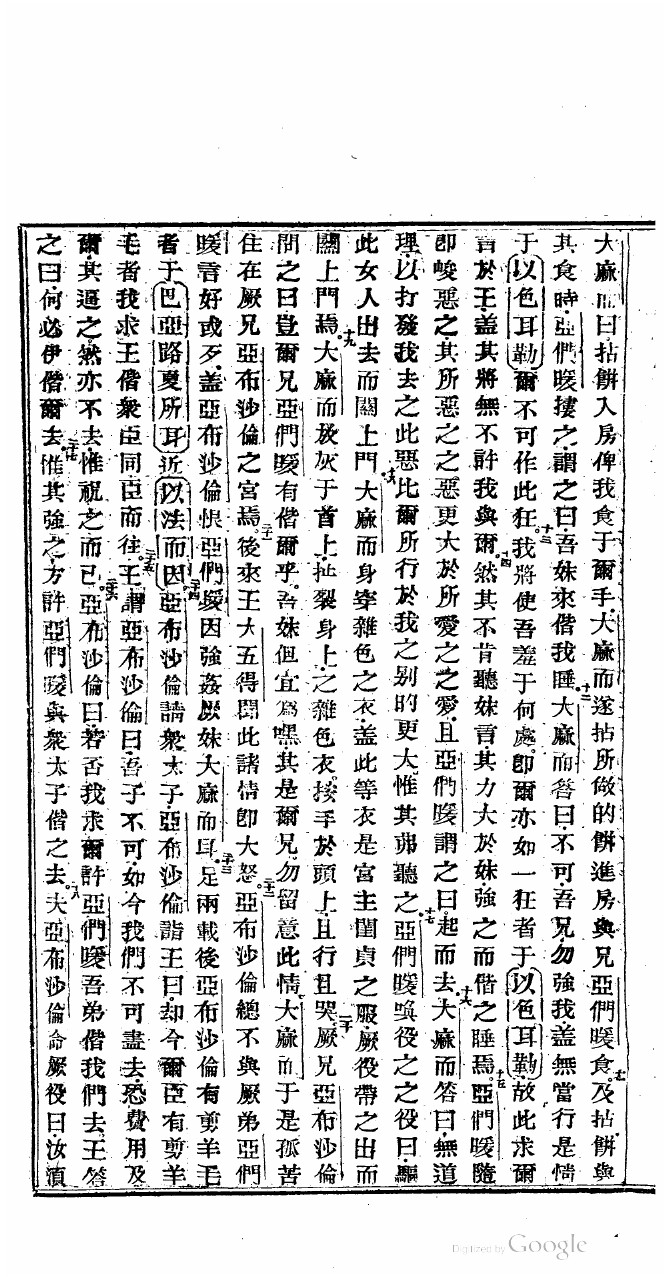 大蔴而曰拈餅入房俾我食于爾手大蔴而遂拈所做的餅進房與兄亞們㬉食十一及拈餅與
其食時亞們㬉摟之謂之曰吾妹來偕我睡十二大蔴而答曰不可吾兄勿強我蓋無當行是情
于以色耳勒爾不可作此狂十三我將使吾羞于何處即爾亦如一狂者于以色耳勒故此求爾
言於王蓋其將無不許我與爾十四然其不肯聽妹言其力大於妹強之而偕之睡焉十五亞們㬉隨
即峻惡之其所惡之之惡更大於所愛之之愛且亞們㬉謂之曰起而去十六大蔴而答曰無道
理以打發我去之此惡比爾所行於我之别的更大惟其弗聽之十七亞們㬉喚役之之役曰驅
此女人出去而關上門十八大蔴而身穿雜色之衣蓋此等衣是宮主閨貞之服厥役帶之出而
關上門焉十九大蔴而放灰于首上扯裂身上之雜色衣按手於頭上且行且哭二十厥兄亞布沙倫
問之曰豈爾兄亞們㬉有偕爾乎吾妹但宜爲嘿其是爾兄勿留意此情大蔴而于是孤苦
住在厥兄亞布沙倫之宮焉二十一後來王大五得聞此諸情即大怒二十二亞布沙倫總不與厥弟亞們
㬉言好或歹蓋亞布沙倫恨亞們㬉因強姦厥妹大蔴而耳二十三足兩載後亞布沙倫有剪羊毛
者于巴亞路夏所耳近以法而因二十四亞布沙倫請衆太子亞布沙倫詣王曰却今爾臣有剪羊
毛者我求王偕衆臣同臣而往二十五王謂亞布沙倫曰吾子不可如今我們不可盡去恐費用及
爾其逼之然亦不去惟祝之而已二十六亞布沙倫曰若否我求爾許亞們㬉吾弟偕我們去王答
之曰何必伊偕爾去二十七惟其強之方許亞們㬉與衆太子偕之去二十八夫亞布沙倫命厥役曰汝須
Digitized by Google